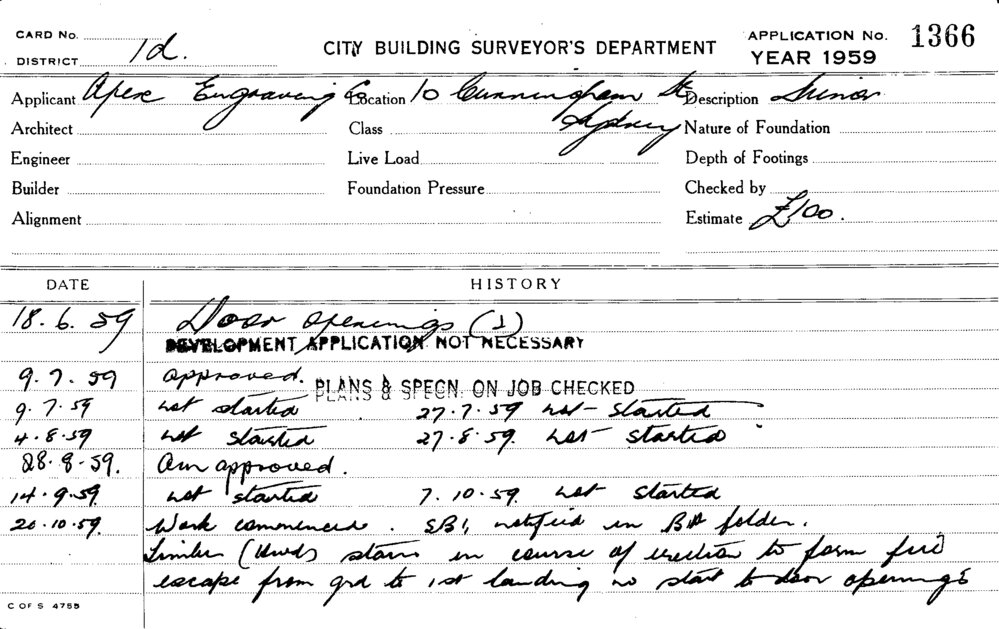 CARD No.
DISTRICT 1d.
CITY BUILDING SURVEYOR'S DEPARTMENT
APPLICATION No. 1366
YEAR 1959
Applicant Apex Engraving Co Location 10 Cunningham St Description Minor
Architect Class Sydney Nature of Foundation
Engineer Live Load Depth of Footings
Builder Foundation Pressure Checked by
Alignment Estimate £100.
DATE HISTORY
18.6.59 Door openings (1)
DEVELOPMENT APPLICATION NOT NECESSARY
9.7.59 approved. PLANS & SPECN. ON JOB CHECKED
9.7.59 not started 27.7.59 not started
4.8.59 not started 27.8.59. not started
28.8.59. Am approved.
14.9.59. not started 7.10.59. not started
20.10.59. Work commenced. SBI, notified in folder.
Timber (Hwd) stairs in course of erection to form fire
escape from grd to 1st landing no start to door openings
C OF S 4755